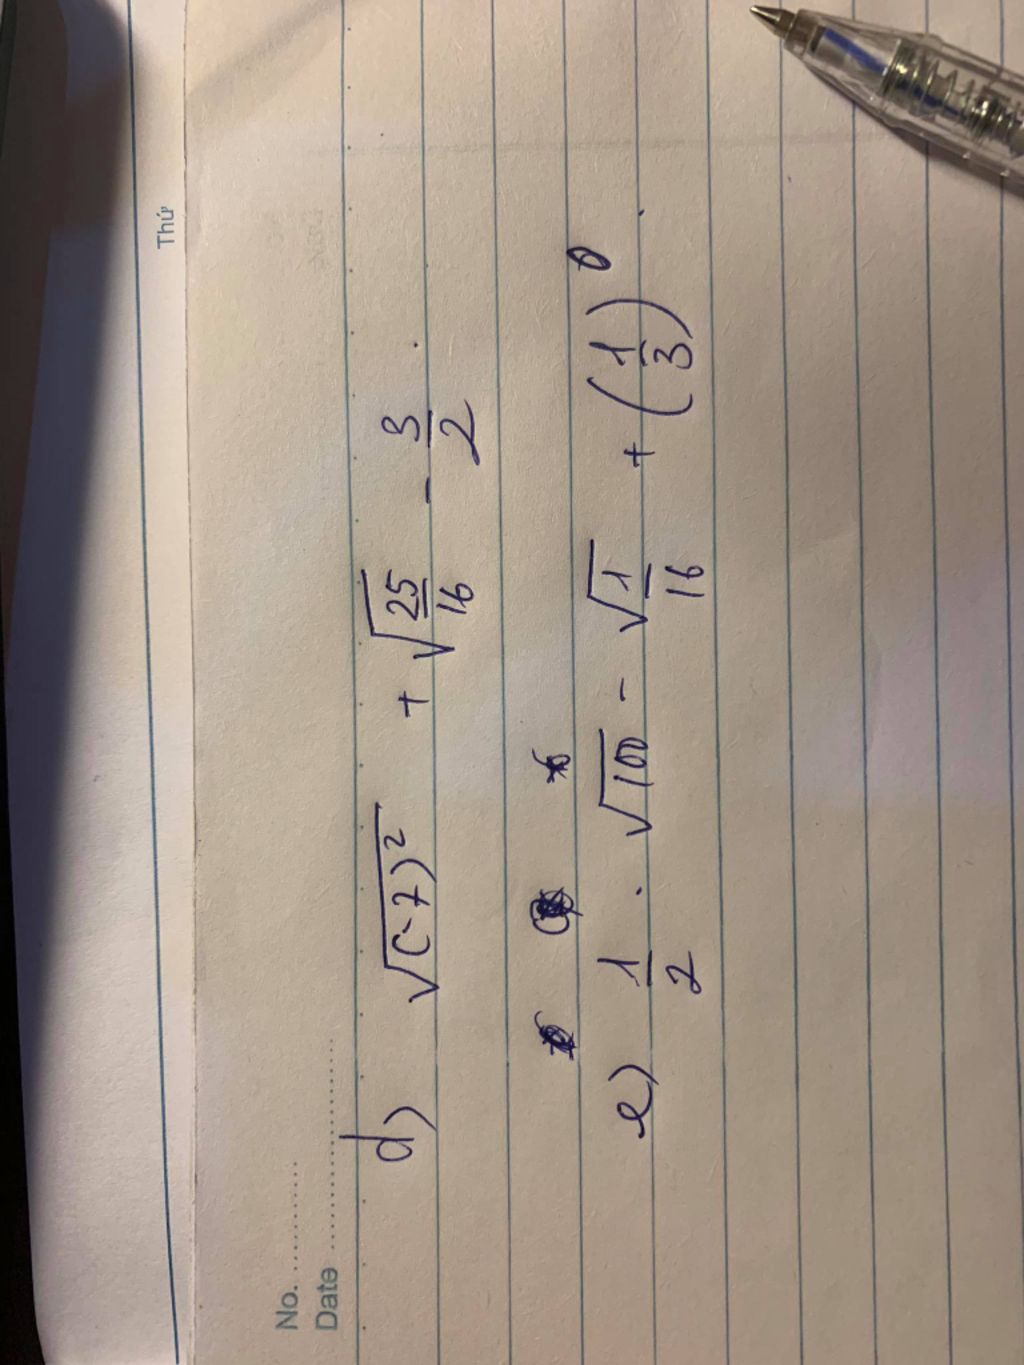 Thứ
No. ..........
Date ........................
d) √(-7)² + √25/16 - 3/2
e) 1/2 . √100 - √1/16 + (1/3)⁰